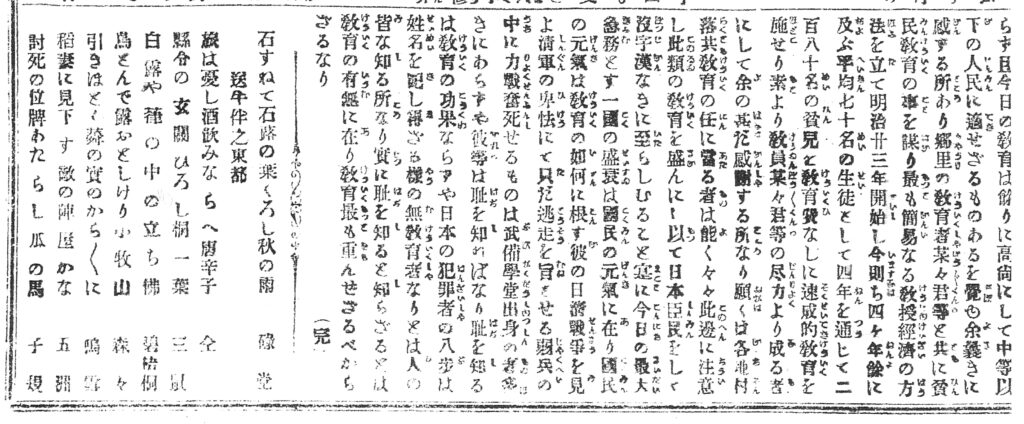 らず且今日の敎育は餘りに高尙にして中等以
下の人民に適せざるものあるを覺も余義きに
感する所あり鄕里の敎育者某々君等と共に貧
民敎育の事を謀り最も簡易なる敎授經濟の方
法を立て明治廿三年開始し今則ち四ヶ年餘に
及ぶ平均七十名の生徒として四年を通じて二
百八十名の貧兒と敎育費なしに速成的敎育を
施せり素より敎員某々君等の尽力より成る者
にして余の甚だ感謝する所なり願くは各地村
落共敎育の任に當る者は能く々々此邊に注意
し此類の敎育を盛んにし以て日本臣民をして
沒字漢なきに至らしむること寔に今日の最大
急務とす一國の盛衰は國民の元氣に在り國民
の元氣は敎育の如何に根す彼の日淸戰爭を見
よ淸軍の卑怯にて只だ逃走を旨とせる弱兵の
中に力戰奮死せるものは武備學堂出身の者
きにあらずや彼等は耻を知ればなり耻を知る
は敎育の功果ならずや日本の犯罪者の八步は
姓名を記し得ざる樣の無敎育者なりとは人の
皆な知る所なり實に耻を知ると知らざるとは
敎育の有無に在り敎育最も重んせざるべから
ざるなり
(完)
石すねて石蕗の葉くろし秋の雨 碌堂
送牛伴之東都
旅は憂し酒飮みならへ唐辛子 仝
縣令の玄關ひろし桐一葉 三鼠
白露や種の中の立ち佛 碧梧桐
鳥とんで露おとしけり小牧山 森々
引きほどく蘂の實のから〱に 鳴雪
稻妻に見下す敵の陣屋かな 五洲
討死の位牌わたらし瓜の馬 子規